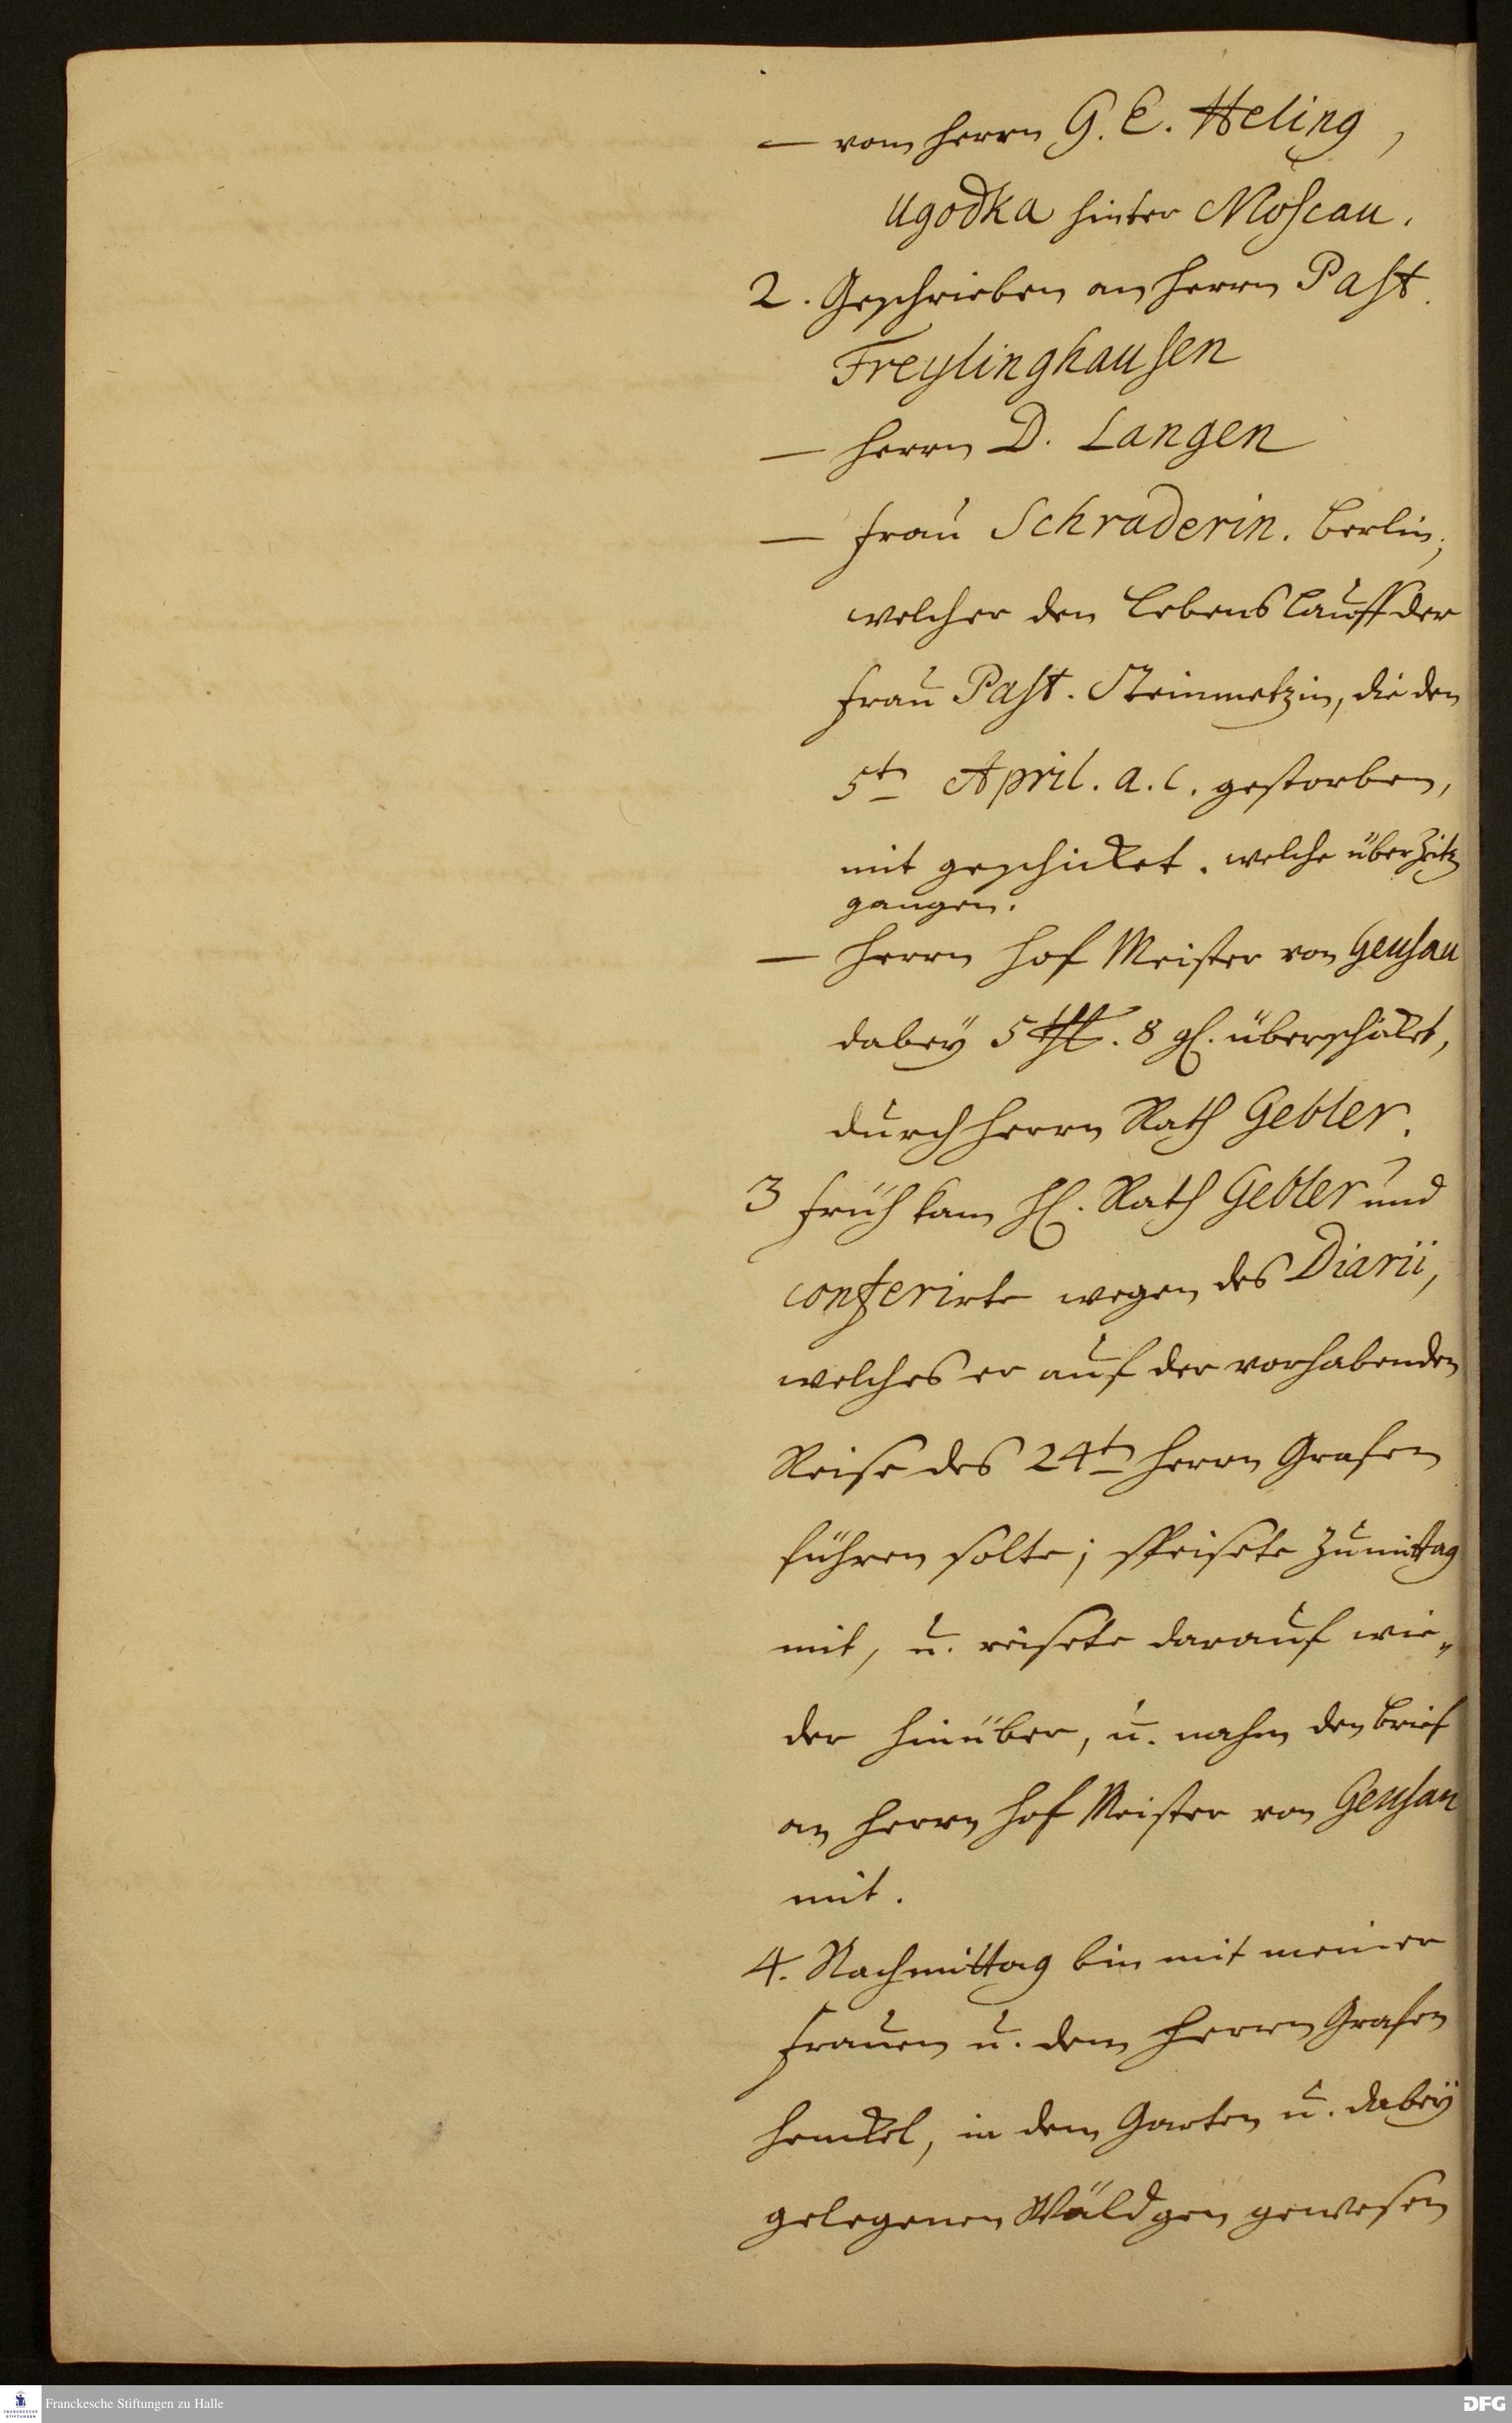 — vom Herrn G. E. Heling,
Ugodka hinter Moscau.
2. Geschrieben an Herrn Past.
Freylinghausen
— Herrn D. Langen
— Frau Schraderin. Berlin;
welcher den Lebenslauff der
Frau Past. Steinmetzin, die den
5tn April. a. c. gestorben,
mit geschicket. welche über Zeitz
gangen.
— Herrn Hof Meister von Geusau
dabey 5 thl. 8 gl. überschickt,
durch Herrn Rath Gebler.
3 Früh kam Hl. Rath Gebler und
conferirte wegen des Diarii,
welches er auf der vorhabenden
Reise des 24tn Herrn Grafen
führen solte; speisete zu mittag
mit, u. reisete darauf wie„
der hinüber, u. nahm den Brief
an Herrn Hof Meister von Geusau
mit.
4. Nachmittag bin mit meiner
Frauen u. dem Herrn Grafen
Henckel, in dem Garten u. dabey
gelegenen Wäldgen gewesen
Franckesche Stiftungen zu Halle
DFG